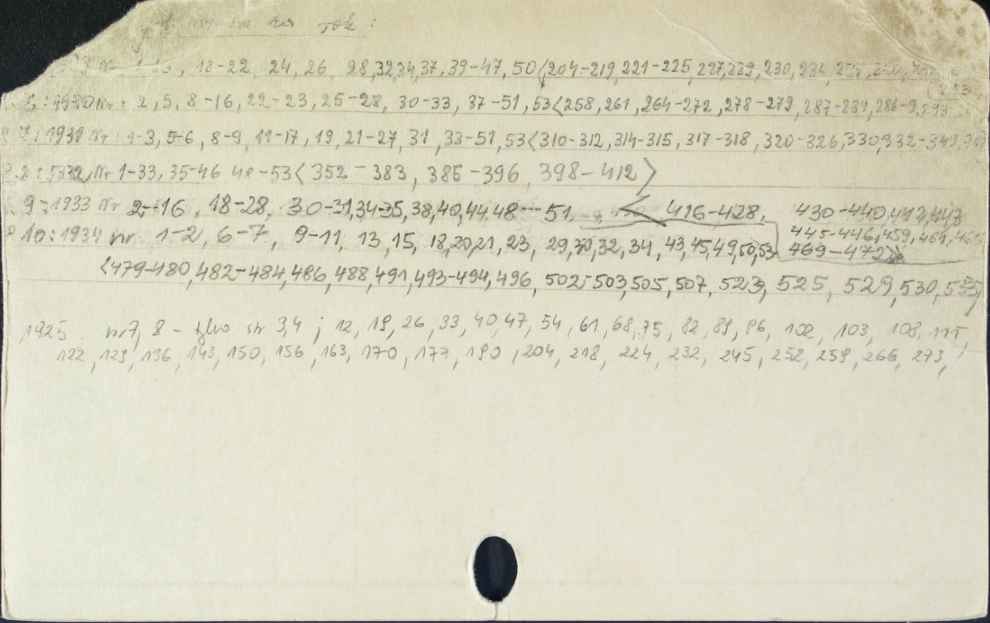 rok :
18-22, 24, 26, 28, 32, 34, 37, 39-47, 50 <204-219, 221-225, 227, 229, 230, 234,
: 1930 Nr: 2, 5, 8-16, 22-23, 25-28, 30-33, 37-51, 53 <258, 261, 264-272, 278-279,
: 1931 Nr: 1-3, 5-6, 8-9, 11-17, 19, 21-27, 31, 33-51, 53 <310-312, 314-315, 317-318, 320-326, 330, 332-349,
Nr 1-33, 35-46 48-53 < 352-383, 385-396, 398-412 >
9: 1933 Nr 2-16, 18-28, 30-31, 34-35, 38, 40, 44, 48-51, < 416-428, 430-440, 442, 443
445-446, 459, 461,
10: 1934 nr. 1-2, 6-7, 9-11, 13, 15, 18, 20, 21, 23, 29, 30, 32, 34, 43, 45, 49, 50, 53 469-472
<479-480, 482-484, 486, 488, 491, 493-494, 496, 502, 503, 505, 507, 523, 525, 529, 530, 535,
1925 nr 7, 8 - str 3,4 ; 12, 19, 26, 33, 40, 47, 54, 61, 68, 75, 82, 89, 96, 102, 103, 108, 115,
122, 129, 136, 143, 150, 156, 163, 170, 177, 190, 204, 218, 224, 232, 245, 252, 259, 266, 273,